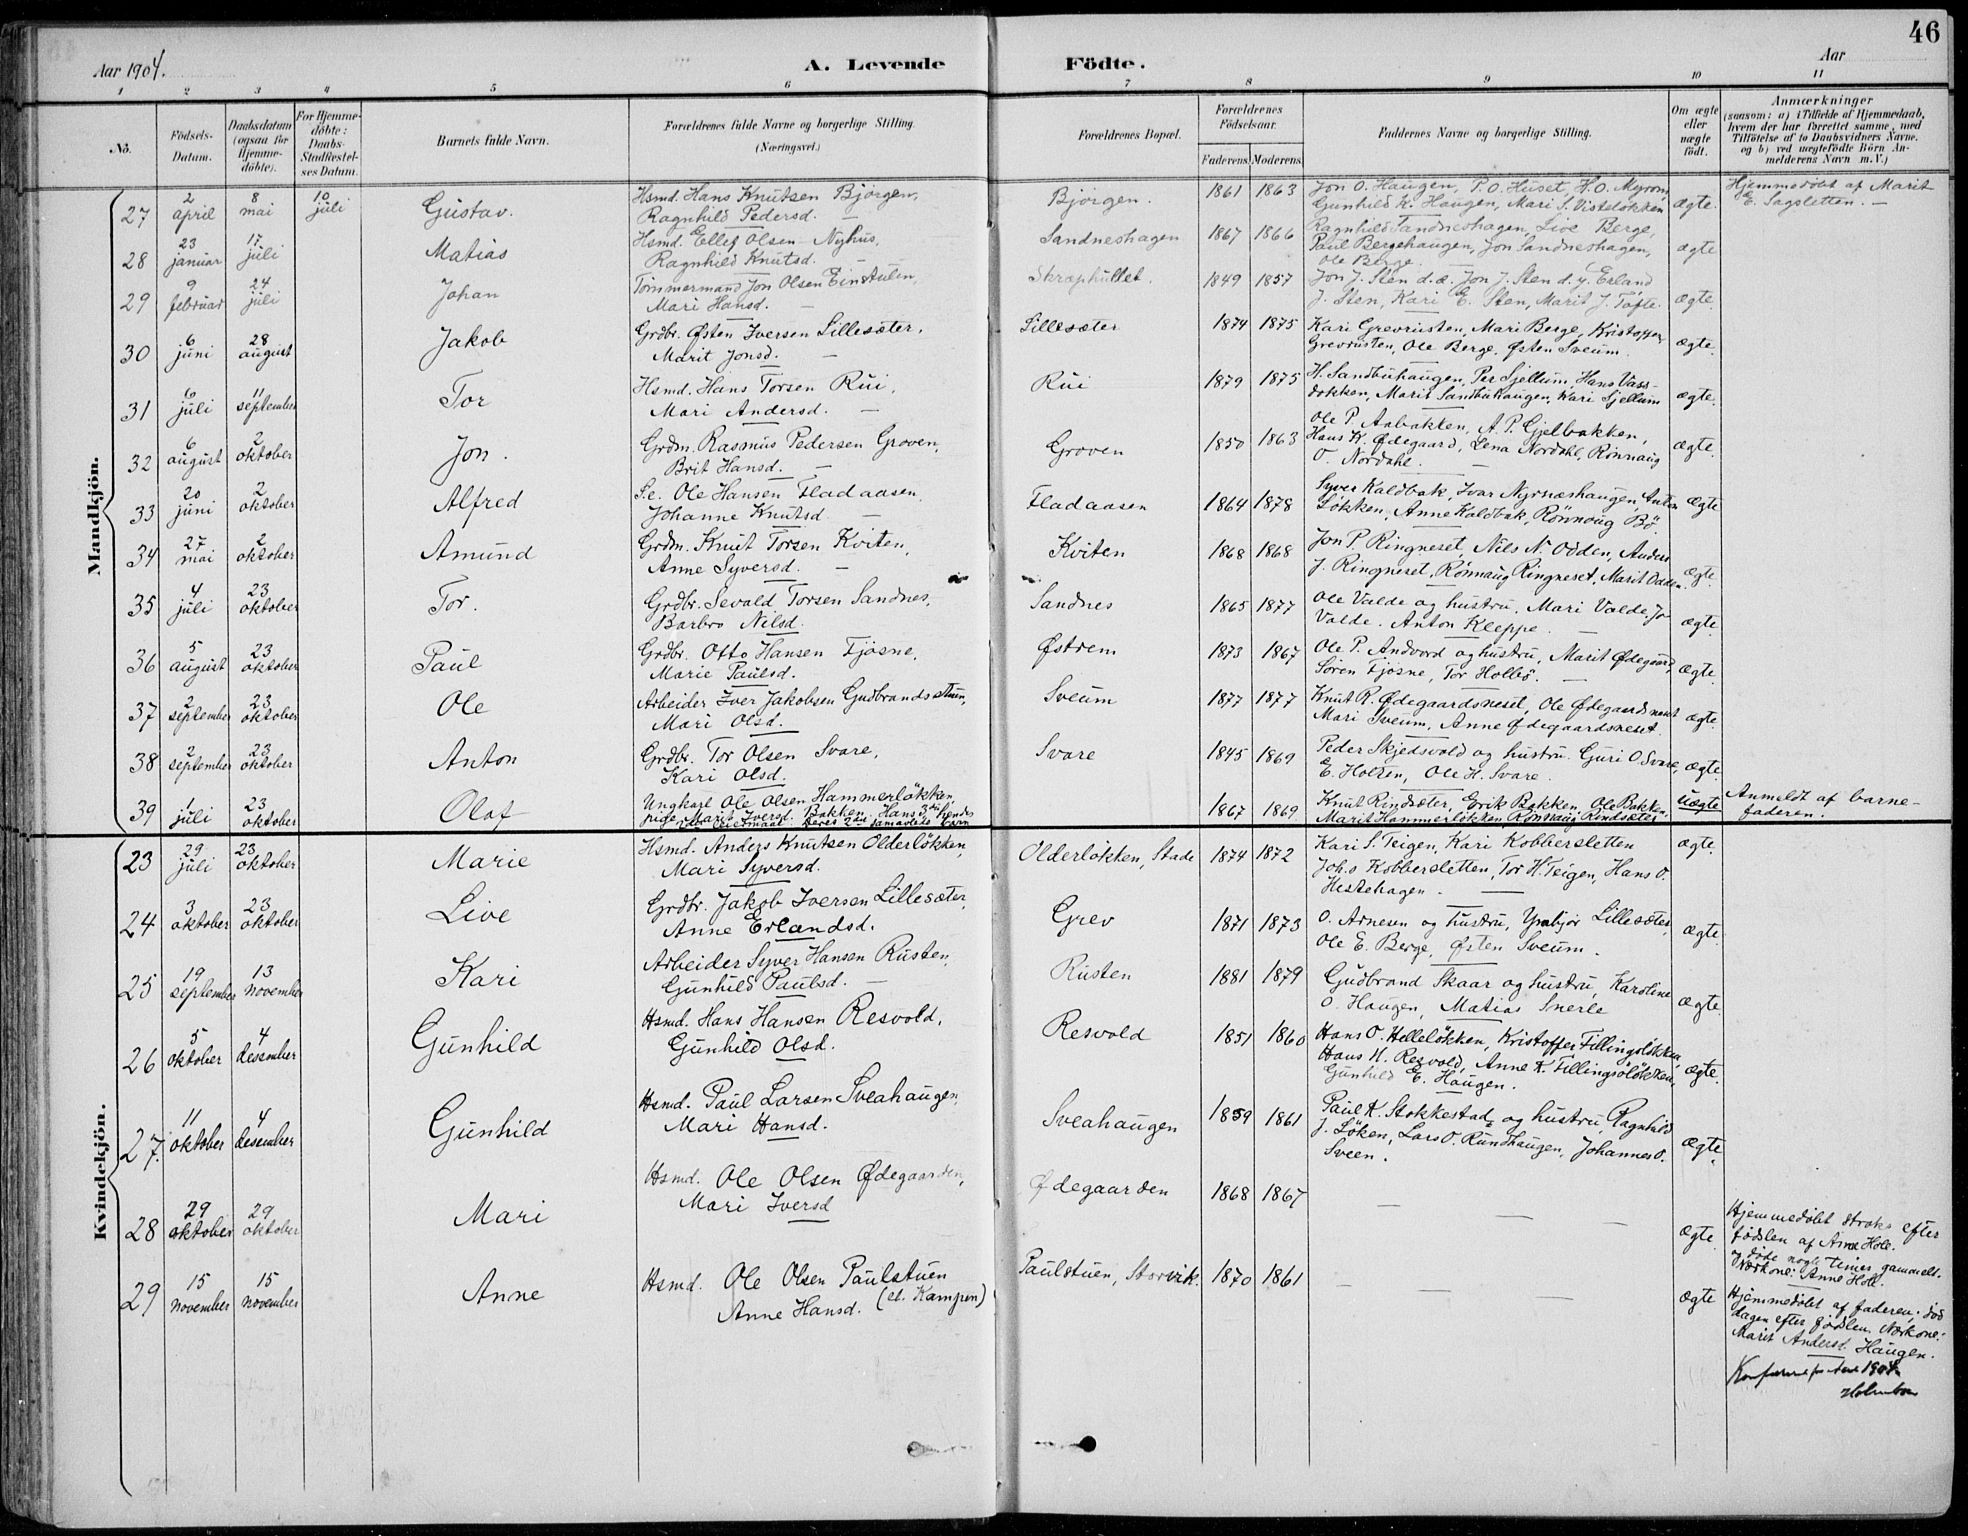 46
Aar 1904.
A. Levende Födte.
Aar
1 2 3 4 5 6 7 8 9 10 11
No.
Födsels-Datum.
Daabsdatum (ogsaa for Hjemme-döbte).
For Hjemme-döbte: Daabs-Stadfæstel-ses Datum.
Barnets fulde Navn.
Forældrenes fulde Navne og borgerlige Stilling. (Næringsvei.)
Forældrenes Bopæl.
Forældrenes Födselsaar.
Faderens. Moderens.
Faddernes Navne og borgerlige Stilling.
Om ægte eller uægte födt.
Anmærkninger
(saasom: a) i Tilfælde af Hjemmedaab, hvem der har forrettet samme, med Tilföielse af to Daabsvidners Navne. og b) ved uægtefödte Börn An-melderens Navn m. V.)
Mandkjön.
27 2 april 8 mai 10 juli Gustav. Hsmd. Hans Knutsen Bjørgen, Bjørgen. 1861 1863 Jon O. Haugen, P. O. Huset, H. O. Myrom, ægte. Hjemmedöbt af Marit
Ragnhild Pedersd. — Gunhild K. Haugen, Mari S. Visteløkken E. Sagsletten. —
28 23 januar 17 juli Matias Hsmd. Ellef Olsen Nyhus, Sandneshagen 1867 1866 Ragnhild Sandneshagen, Live Berge, ægte
Ragnhild Knutsd. — Paul Bergehaugen, Jon Sandneshagen,
Ole Berge.
29 9 februar 24 juli Johan Tömmermand Jon Olsen Einstulen, Skraphullet. 1849 1857 Jon J. Sten d.æ. Jon J. Sten d.y. Erland ægte.
Mari Hansd. — J. Sten, Kari E. Sten, Marit J. Tøfte.
30 6 juni 28 august Jakob Grdbr. Østen Iversen Lillesæter. Lillesæter 1874 1875 Kari Grevrusten, Mari Berge, Kristoffer ægte.
Marit Jonsd. — Grevrusten, Ole Berge. Østen Sveum.
31 6 juli 11 september Tor Hsmd. Hans Torsen Rui, Rui 1879 1875 H. Sandbuhaugen, Per Sjellum, Hans Vass- ægte.
Mari Andersd. — dokken, Marit Sandbuhaugen, Kari Sjellum
32 6 august 2 oktober Jon. Grdm. Rasmus Pedersen Groven, Groven 1850 1863 Ole P. Aabakken, A. P. Gjelbakken, ægte.
Brit Hansd. — Hans K. Ødegaard, Lena Nordahl, Rönnaug
O. Nordahl. —
33 20 juni 2 oktober Alfred S.e. Ole Hansen Fladaasen, Fladaasen 1864 1878 Syver Kaldbak, Ivar Nyrnæshaugen, Anton ægte
Johanne Knutsd. — Løkken, Anne Kaldbak, Rönnaug Bö
34 27 mai 2 oktober Amund Grdm. Knut Torsen Kviten, Kviten 1868 1868 Jon P. Ringneset, Nils N. Odden, Anders ægte.
Anne Syversd. — J. Ringneset, Rönnaug Ringneset, Marit Odden.
35 4 juli 23 oktober Tor. Grdbr. Sevald Torsen Sandnes, Sandnes 1865 1877 Ole Valde og hustru, Mari Valde, Jo ægte.
Barbro Nilsd. Valde. Anton Kleppe. —
36 5 august 23 oktober Paul Grdbr. Otto Hansen Fjösne, Østrem 1873 1867 Ole P. Andvord og hustru, Marit Ødegaard, ægte.
Marie Paulsd. Sören Fjösne, Tor Holbö. —
37 2 september 23 oktober Ole Arbeider Iver Jakobsen Gudbrandsstuen, Sveum 1877 1877 Knut R. Ødegaardsneset, Ole Ødegaardsneset ægte.
Mari Olsd. Mari Sveum, Anne Ødegaardsneset.
38 2 september 23 oktober Anton Grdbr. Tor Olsen Svare, Svare 1845 1869 Peder Skjedsvold og hustru. Guri O. Svare, ægte.
Kari Olsd. E. Holzen, Ole H. Svare.
39 1 juli 23 oktober Olaf Ungkarl Ole Olsen Hammerløkken, 1867 1869 Knut Rindsæter, Erik Bakken, Ole Bakken, Uægte Anmeldt af barne-
pige Marit Iversd. Bakken. Hans 3die hendes Marit Hammerløkken, Rönnaug Rindsæter faderen.
2det leiermaal. Deres 2det samavlede barn
Kvindekjön.
23 29 juli 23 oktober Marie Hsmd. Anders Knutsen Olderløkken, Olderløkken, Stade 1874 1872 Kari S. Teigen, Kari Kobbersletten ægte.
Mari Syversd. Johs Kobbersletten, Tor H. Teigen, Hans O.
Hestehagen. —
24 3 oktober 23 oktober Live Grdbr. Jakob Iversen Lillesæter, Grev 1871 1873 O. Arnesen og hustru, Ynbjör Lillesæter, ægte.
Anne Erlandsd. Ole E. Berge, Østen Sveum.
25 19 september 13 november Kari Arbeider Syver Hansen Rusten, Rusten 1881 1879 Gudbrand Skaar og hustru, Karoline ægte
Gunhild Paulsd. — O. Haugen, Matias Snerle
26 5 oktober 4 desember Gunhild Hsmd. Hans Hansen Resvold, Resvold 1851 1860 Hans O. Helleløkken, Kristoffer Fillingsløkken, ægte.
Gunhild Olsd. Hans H. Resvold, Anne K. Fillingsløkken,
Gunhild E. Haugen.
27. 11 oktober 4 desember Gunhild Hsmd. Paul Larsen Sveahaugen, Sveahaugen 1859 1861 Paul K. Stokkestad og hustru, Ragnhild ægte.
Mari Hansd. J. Löken, Lars O. Rundhaugen, Johannes O.
Sveen.
28 29 oktober 29 oktober Mari Hsmd. Ole Olsen Ødegaarden, Ødegaarden 1868 1867 — — — ægte Hjemmedöbt straks efter
Mari Iversd födslen af Anne Holl.
döde nogle timer gammelt.
Nærkone: Anne Holl.
29 15 november 15 november Anne Hsmd. Ole Olsen Paulstuen Paulstuen, Storvik. 1870 1861 — — — ægte Hjemmedöbt af faderen; död
Anne Hansd. (el. Kampen) dagen efter födslen. Nærkone:
Marit Anderst. Haugen.
1904